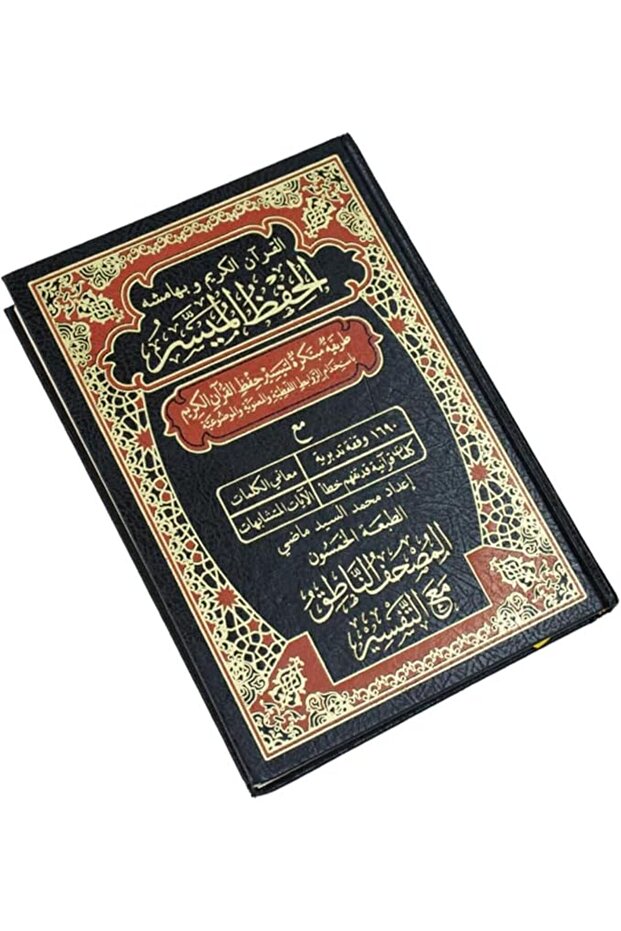 القرآن الكريم وبهامشه
الحفظ الميسر
طريقة مبتكرة لتيسير حفظ القرآن الكريم
باستخدام الروابط اللفظية والمعنوية والموضوعية
مع
١٦٩٠ وقفة تدبرية معاني الكلمات
كلمات قرآنية قد تفهم خطأ الآيات المتشابهات
إعداد محمد السيد ماضي
الطبعة الخمسون
المصحف الناطق
مع التفسير